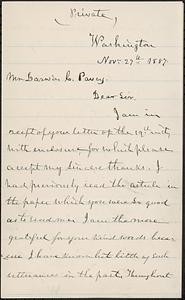 (Private)
Washington
Nov. 27th 1887.
Mr. Darwin C. Pavey.
Dear Sir.
I am in
receipt of your letter of the 19th inst,
with enclosure for which please
accept my sincere thanks. I
had previously read the article in
the paper which you were so good
as to send me. I am the more
grateful for your kind words becau
se I have known but little of such
utterances in the past. Throughout